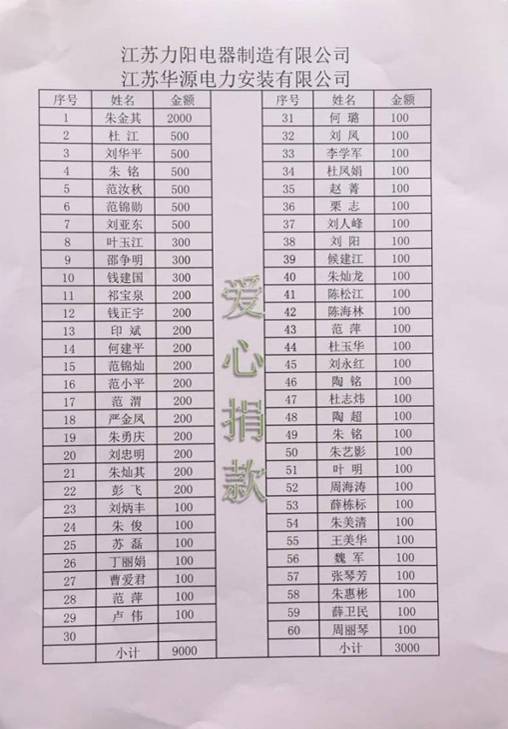 江苏力阳电器制造有限公司
江苏华源电力安装有限公司
序号 姓名 金额
1 朱金其 2000
2 杜 江 500
3 刘华平 500
4 朱 铭 500
5 范汝秋 500
6 范锦勋 500
7 刘亚东 500
8 叶玉江 300
9 邵争明 300
10 钱建国 300
11 祁宝泉 200
12 钱正宇 200
13 印 斌 200
14 何建平 200
15 范锦灿 200
16 范小平 200
17 范 渭 200
18 严金凤 200
19 朱勇庆 200
20 刘忠明 200
21 朱灿其 200
22 彭 飞 200
23 刘炳丰 100
24 朱 俊 100
25 苏 磊 100
26 丁丽娟 100
27 曹爱君 100
28 范 萍 100
29 卢 伟 100
30
小计 9000
爱
心
捐
款
序号 姓名 金额
31 何 璐 100
32 刘 凤 100
33 李学军 100
34 杜凤娟 100
35 赵 菁 100
36 栗 志 100
37 刘人峰 100
38 刘 阳 100
39 候建江 100
40 朱灿龙 100
41 陈松江 100
42 陈海林 100
43 范 萍 100
44 杜玉华 100
45 刘永红 100
46 陶 铭 100
47 杜志炜 100
48 陶 超 100
49 朱 铭 100
50 朱艺影 100
51 叶 明 100
52 周海涛 100
53 薛栋标 100
54 朱美清 100
55 王美华 100
56 魏 军 100
57 张琴芳 100
58 朱惠彬 100
59 薛卫民 100
60 周丽琴 100
小计 3000